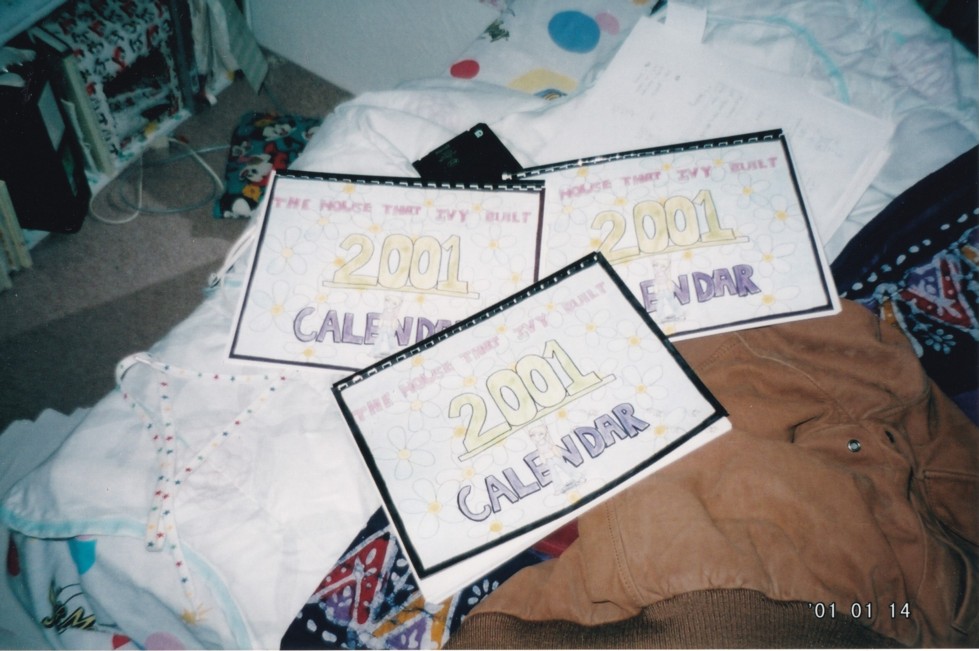 THE HOUSE THAT IVY BUILT
2001
CALENDAR
HOUSE THAT IVY BUILT
2001
ENDAR
THE HOUSE THAT IVY BUILT
2001
CALENDAR
'01 01 14